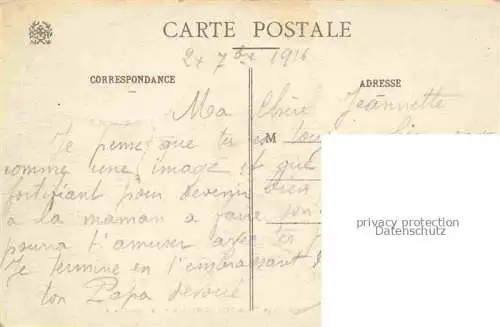 CARTE POSTALE
24 7bre 1916
CORRESPONDANCE
ADRESSE
Ma Chère Jeannette
M
Je pense que tu es
comme une image et que
fortifiant pour devenir bien
à la maman a faire son
pourra t'amuser avec tes
Je termine en t'embrassant
ton Papa dévoué
privacy protection
Datenschutz